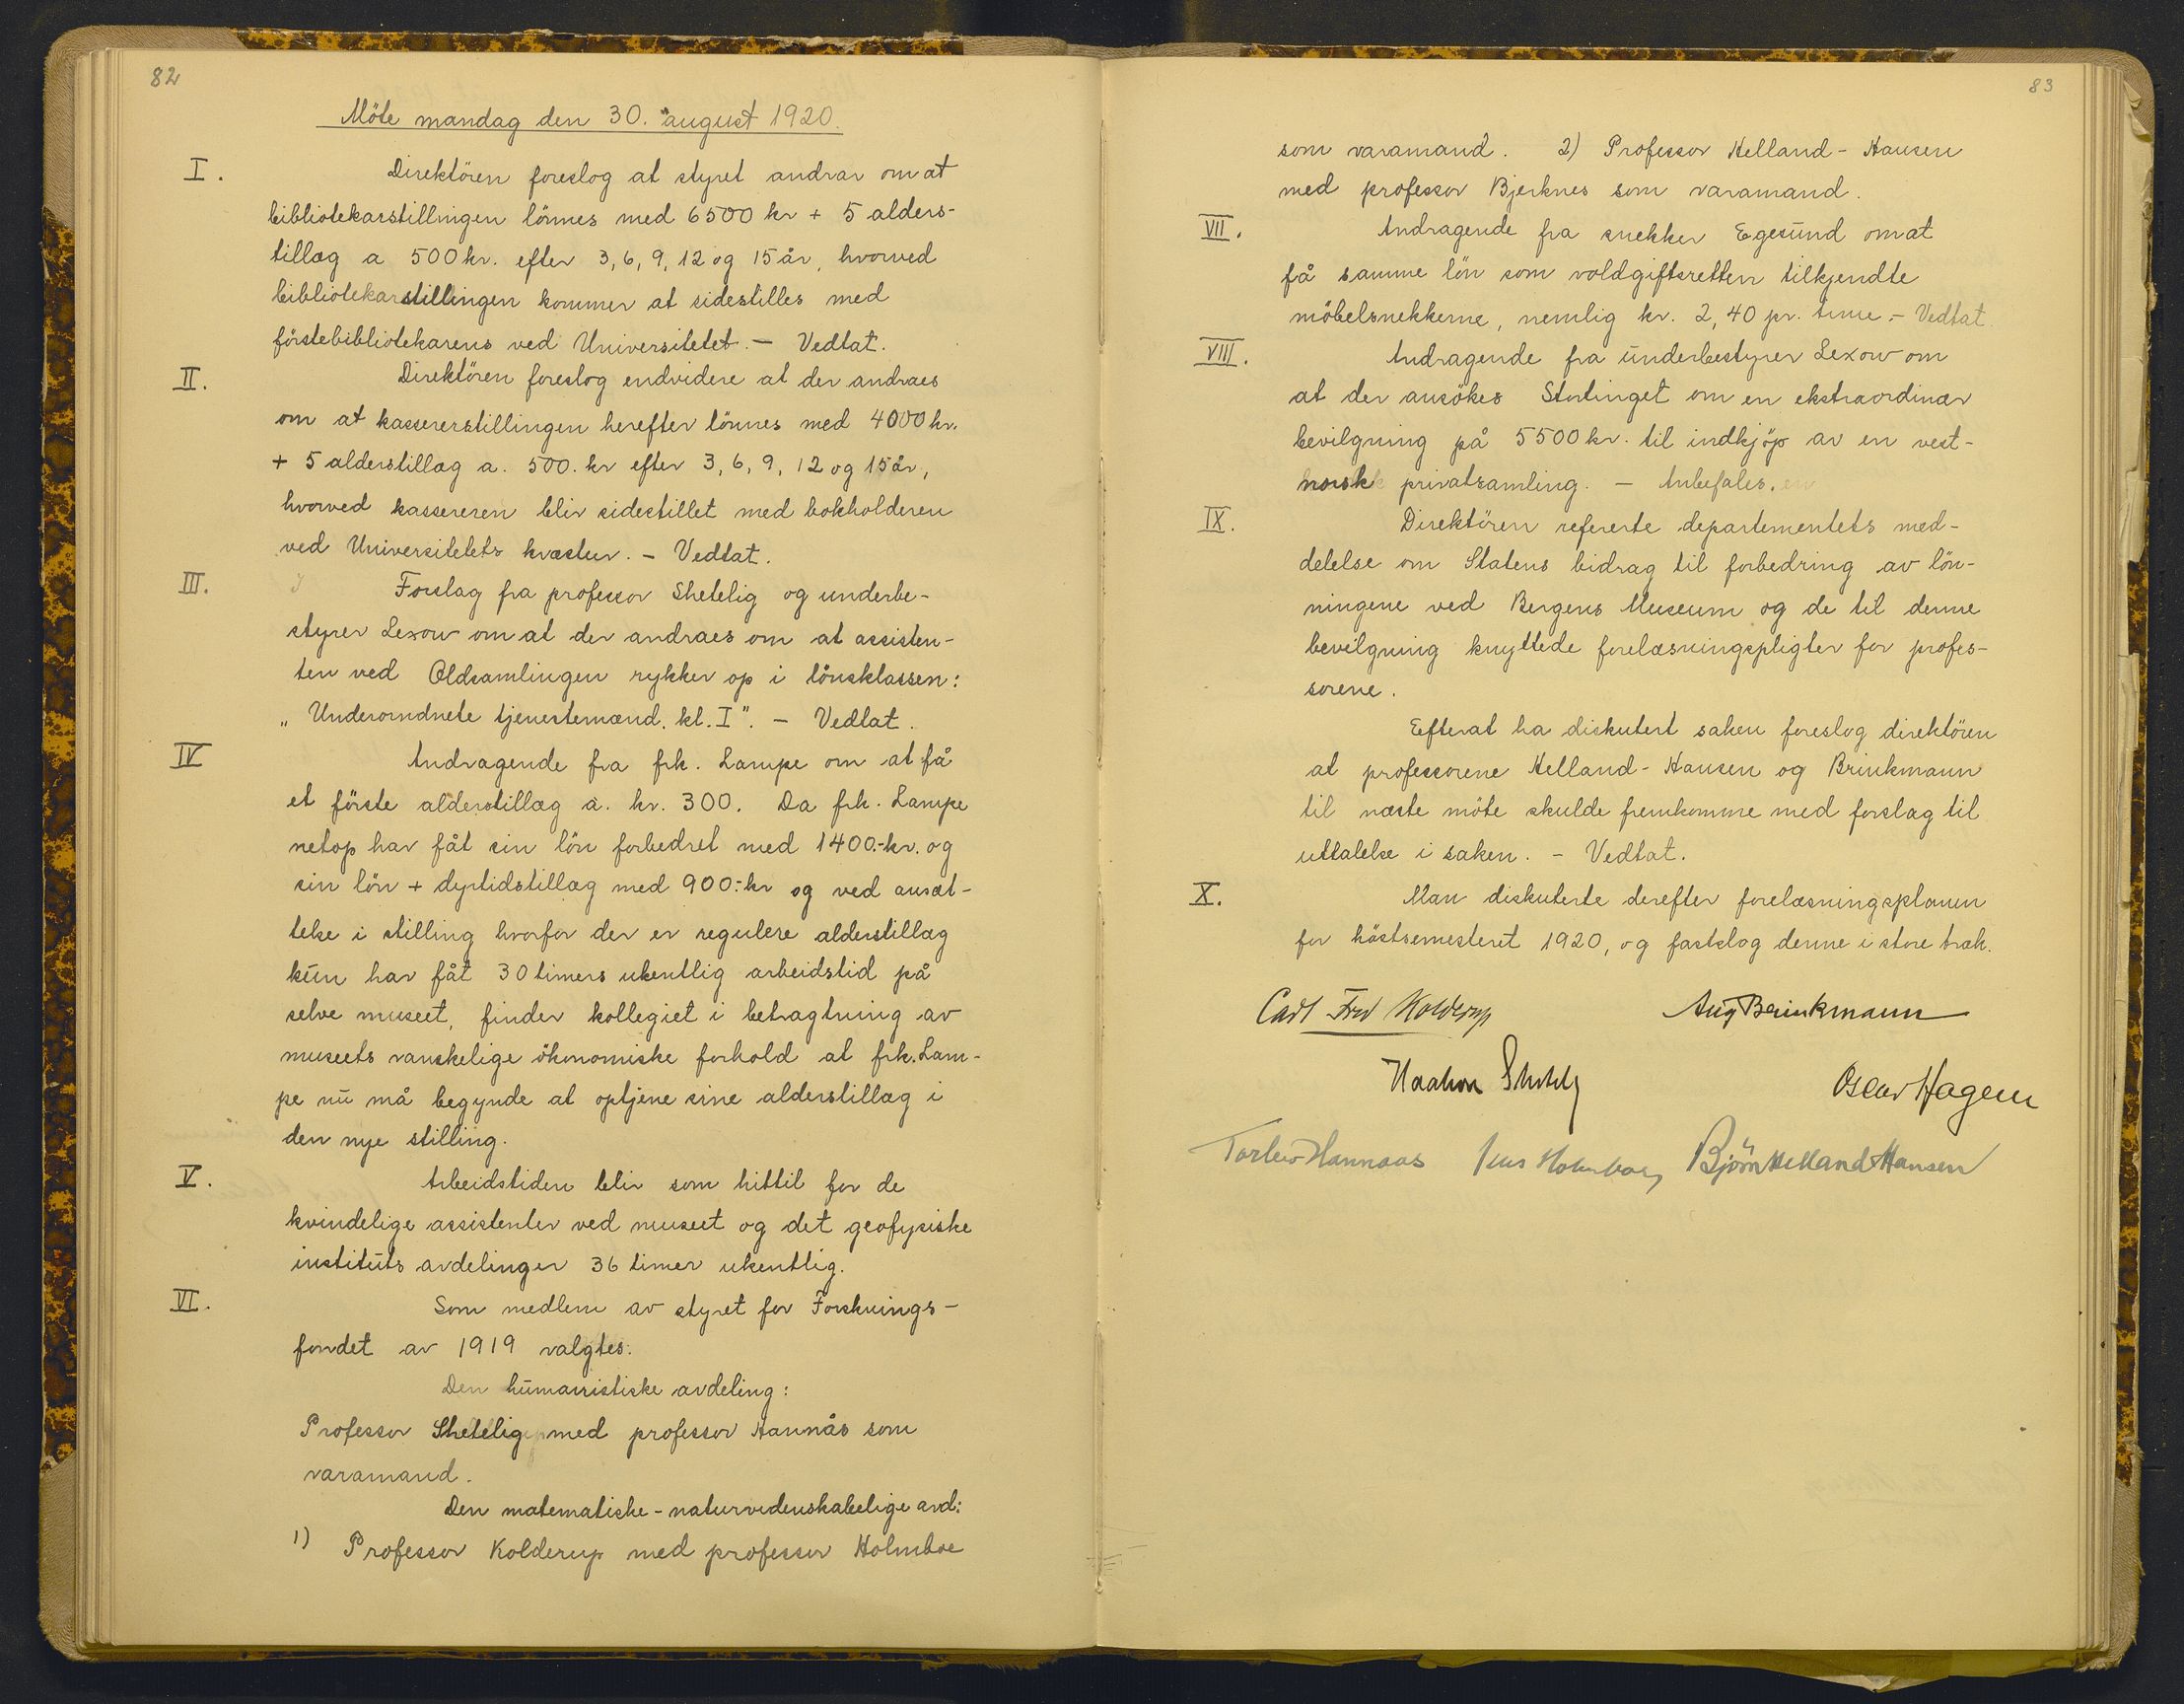 82
Möte mandag den 30. august 1920.
I. Direktören foreslog at styret andrar om at
bibliotekarstillingen lönnes med 6500 kr + 5 alders-
tillæg a 500 kr. efter 3, 6, 9, 12 og 15 år, hvorved
bibliotekarstillingen kommer at sidestilles med
förstebibliotekarens ved Universitetet. — Vedtat.
II. Direktören foreslog endvidere at der andraes
om at kassererstillingen herefter lönnes med 4000 kr.
+ 5 alderstillæg a. 500. kr efter 3, 6, 9, 12 og 15 år,
hvorved kassereren blir sidestillet med bokholderen
ved Universitetets kvæstur. — Vedtat.
III. Forslag fra professor Shetelig og underbe-
styrer Lexow om at der andraes om at assisten-
ten ved Oldsamlingen rykker op i lönsklassen:
„Underorndnete tjenestemænd. kl. I". — Vedtat.
IV Andragende fra frk. Lampe om at få
et förste alderstillæg a. kr. 300. Da frk. Lampe
netop har fåt sin lön forbedret med 1400.-kr. og
sin lön + dyrtidstillæg med 900:-kr og ved ansæt-
telse i stilling hvorfor der er regulere alderstillæg
kun har fåt 30 timers ukentlig arbeidstid på
selve museet, finder kollegiet i betragtning av
museets vanskelige ökonomiske forhold at frk. Lam-
pe nu må begynde at optjene sine alderstillæg i
den nye stilling.
V. Arbeidstiden blir som hittil for de
kvindelige assistenter ved museet og det geofysiske
instituts avdelinger 36 timer ukentlig.
VI. Som medlem av styret for Forsknings-
fondet av 1919 valgtes:
Den humanistiske avdeling:
Professor Shetelig med professor Hannås som
varamand.
Den matematiske-naturvidenskabelige avd:
1) Professor Kolderup med professor Holmboe
83
som varamand. 2) Professor Helland-Hansen
med professor Bjerknes som varamand.
VII. Andragende fra snekker Egesund om at
få samme lön som voldgiftsretten tilkjendte
möbelsnekkerne, nemlig kr. 2,40 pr. time. — Vedtat.
VIII. Andragende fra underbestyrer Lexow om
at der ansökes Stortinget om en ekstraordinær
bevilgning på 5500 kr. til indkjöp av en vest-
norsk privatsamling. — Anbefales.
IX. Direktören refererte departementets med-
delelse om Statens bidrag til forbedring av lön-
ningene ved Bergens Museum og de til denne
bevilgning knyttede forelæsningspligter for profes-
sorene.
Efterat ha diskutert saken foreslog direktören
at professorene Helland-Hansen og Brinkmann
til næste möte skulde fremkomme med forslag til
uttalelse i saken. — Vedtat.
X. Man diskuterte derefter forelæsningsplanen
for höstsemesteret 1920, og fastslog denne i store træk.
Carl Fred Kolderup Aug Brinkmann
Haakon Shetelig Oscar Hagem
Torleiv Hannaas Jens Holmboe Björn Helland Hansen